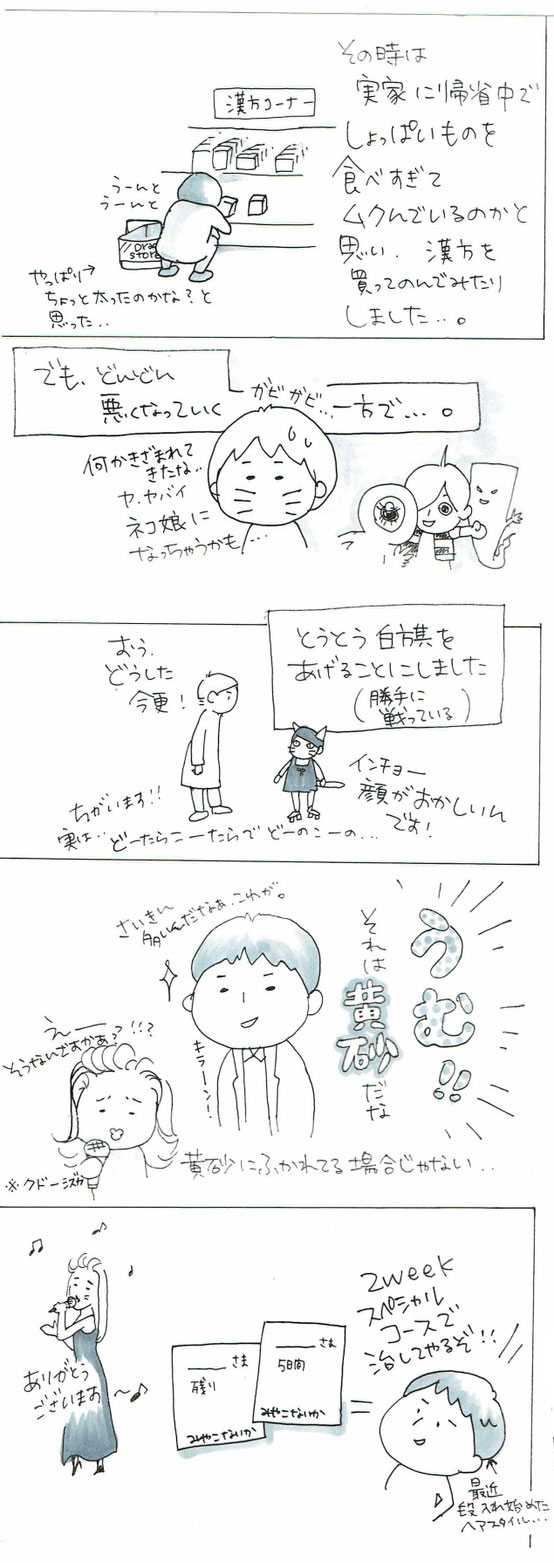 その時は
実家に帰省中で
しょっぱいものを
食べすぎて
ムクんでいるのかと
思い、漢方を
買ってのんでみたり
しました…。
漢方コーナー
うーんと
うーんと
Drag
store
やっぱり→
ちょっと太ったのかな?と
思った..
でも、どんどん
悪くなっていく
一方で…。
ガビガビ…
何かきざまれて
きたな..
ヤ、ヤバイ
ネコ娘に
なっちゃうかも…
とうとう白旗を
あげることにしました
(勝手に
戦っている)
おう、
どうした
今更!
インチョー
顔がおかしいん
です!
ちがいます!!
実は..どーたらこーたらでどーのこーの…
うむ!!
それは
黄砂だな
さいきん
多いんだなぁ、これが。
キラーン!
えーー
そうなんですかあ?!!?
※クドーシズカ
黄砂にふかれてる場合じゃない..
2week
スペシャル
コースで
治してやるぞ!!
ありがとう
ございまあ
〜♪
さま
残り
みやこないか
さま
5日間
みやこないか
=
最近
段入れ始めた
ヘアスタイル…
1